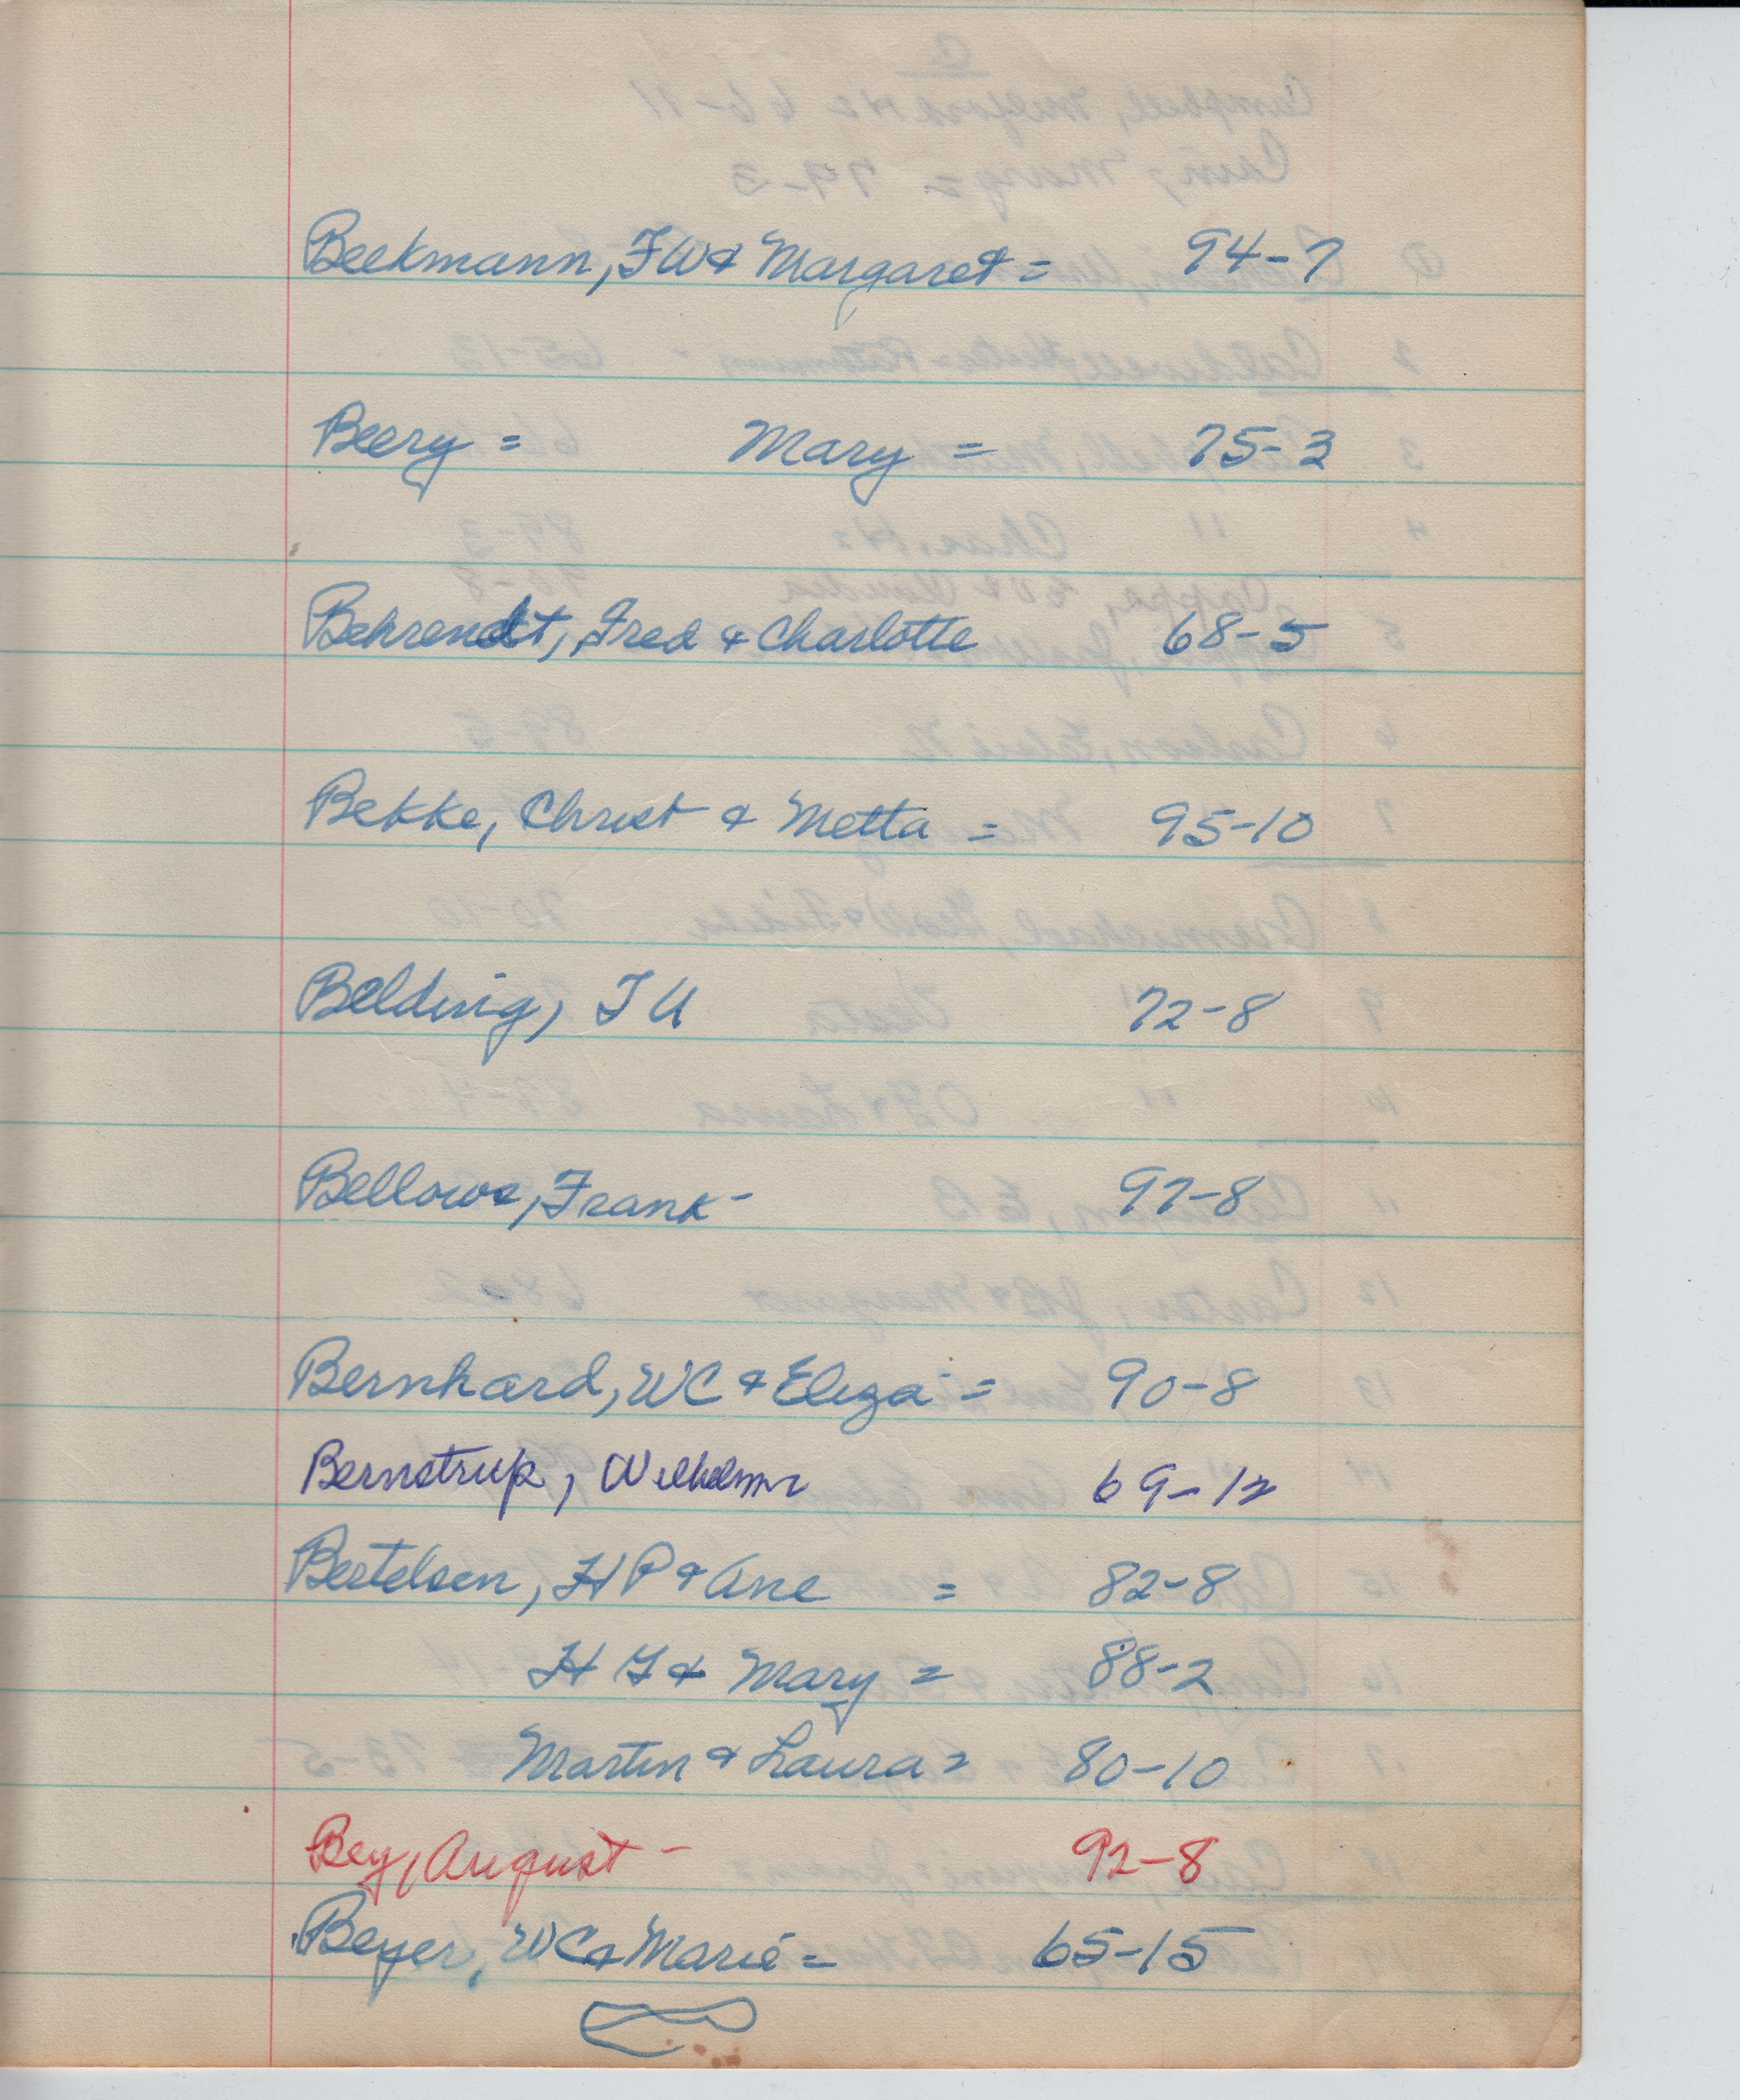 Beekmann, FW & Margaret = 94-7
Beery = Mary = 75-3
Behrendt, Fred & Charlotte 68-5
Bekke, Christ & Metta = 95-10
Belding, F U 72-8
Bellows, Frank - 97-8
Bernhard, WC & Eliza = 90-8
Bernstrup, Wilhelm 69-12
Bertelsen, H P & Ane = 82-8
H & Mary = 88-2
Martin & Laura = 80-10
Bey, August - 92-8
Beyer, WC & Marie = 65-15